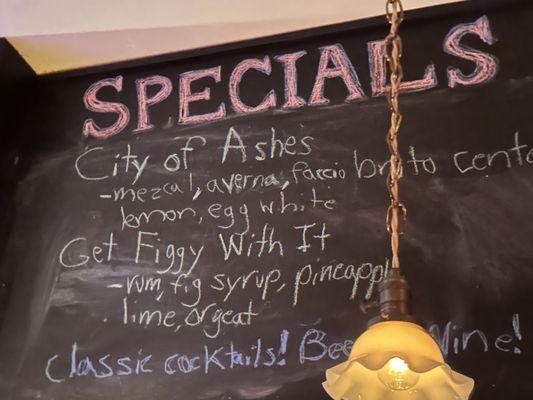 SPECIALS
City of Ashes
-mezcal, averna, faccio bruto cento
lemon, egg white
Get Figgy With It
-rum, fig syrup, pineappl
lime, orgeat
Classic cocktails! Bee Wine!